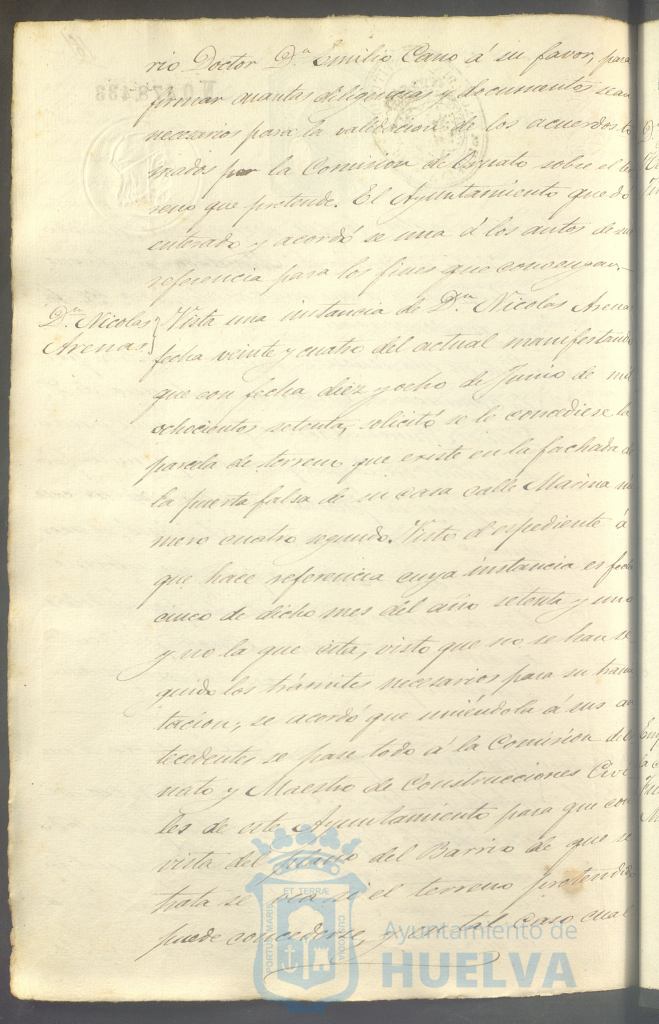 rio Doctor D.n Emilio Cano á su favor, para
firmar cuantas diligencias y documentos sean
necesarios para la validacion de los acuerdos to
mados por la Comision de Ornato sobre el te
rreno que pretende. El Ayuntamiento quedó
enterado y acordó se una á los autos de su
referencia para los fines que convengan.
D.n Nicolas
Arenas
Vista una instancia de D.n Nicolas Arenas
fecha veinte y cuatro del actual manifestando
que con fecha diez y ocho de Junio de mil
ochocientos setenta, solicitó se le concediese la
parcela de terreno que existe en la fachada de
la puerta falsa de su casa calle Marina nú
mero cuatro segundo. Visto el espediente á
que hace referencia cuya instancia es fecha
cinco de dicho mes del año setenta y uno
y no la que cita, visto que no se han se
guido los trámites necesarios para su trami
tacion, se acordó que uniéndola á sus an
tecedentes se pase todo á la Comision de Or
nato y Maestro de Construcciones Civi
les de este Ayuntamiento, para que con
vista del plano del Barrio de que se
trata se vea si el terreno pretendido
puede concederse, y en tal caso cual
PORTUM MARIS ET TERRÆ CUSTODIA
Ayuntamiento de
HUELVA